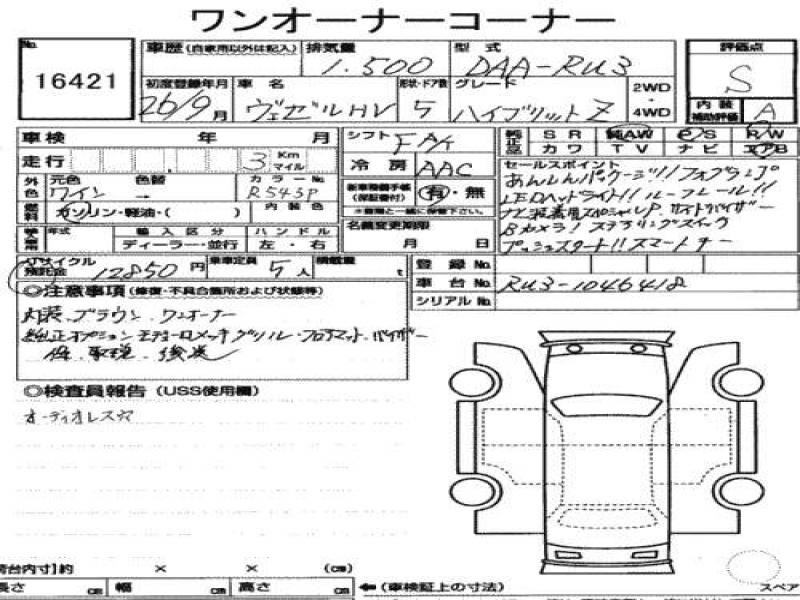 ワンオーナーコーナー
No. 16421
車歴 (自家用以外は記入) 排気量 1.500 型式 DAA-RU3
評価点 S
初度登録年月 26/9月 車名 ヴェゼルHV 形状・ドア数 5 グレード ハイブリッド Z 2WD・4WD
内装補助評価 A
車検 年 月 シフト FAT 純正品 SR 純AW PS R/W
カワ TV ナビ エアB
走行 3 Km マイル 冷房 AAC
セールスポイント
あんしんパッケージ!! フォグランプ
外色 元色 ワイン 色替 → カラーNo. R543P 新車時整備手帳 (保証書付) 有・無
LEDヘッドライト!! ルーフレール!!
燃料 ガソリン・軽油・( ) 内装色
ナビ装着用スペシャルP サイドバイザー
輸入車用 年式 輸入区分 ハンドル 名義変更期限
Bカメラ! ステアリングスイッチ
ディーラー・並行 左・右 月 日
プッシュスタート!! スマートキー
リサイクル預託金 12850円 乗車定員 5人 積載量 t 登録No.
車台No. RU3-1046418
シリアルNo.
◎注意事項 (修復・不具合箇所および状態等)
内装、ブラウン ワンオーナー
純正オプション モデューロメッキグリル・フロアマット・バイザー
保、取説、後送
◎検査員報告 (USS使用欄)
オーディオレス穴
荷台内寸]約 × × (cm)
長さ cm 幅 cm 高さ cm ←(車検証上の寸法)
スペア